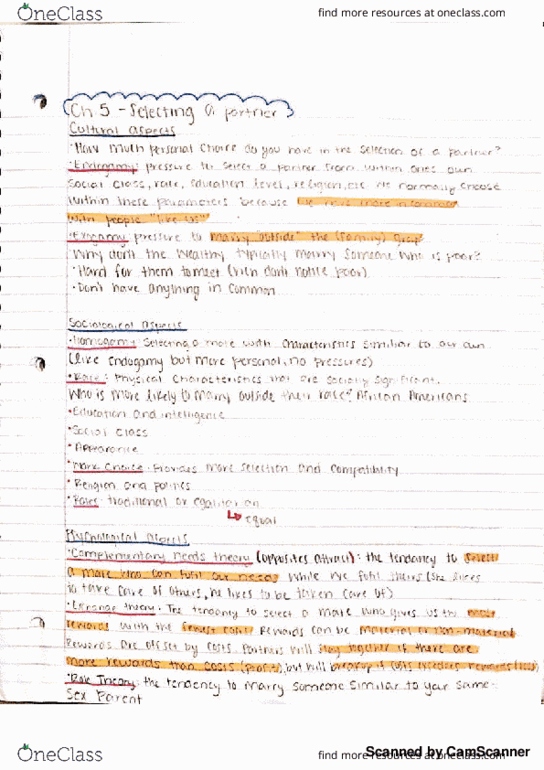 OneClass
find more resources at oneclass.com
Ch 5 - Selecting a partner
Cultural aspects
• How much personal choice do you have in the selection of a partner?
• Endogamy: pressure to select a partner from within ones own
social class, race, education level, religion, etc. We normally choose
within these parameters because we have more in common
with people "like us"
• Exogamy: pressure to marry "outside" the (family) group
Why don't the wealthy typically marry someone who is poor?
• Hard for them to meet (rich don't notice poor)
• Don't have anything in common
Sociological aspects
• Homogamy: Selecting a mate with characteristics similar to our own
(like Endogamy but more personal, no pressures)
• Race: Physical characteristics that are socially significant.
Who is more likely to marry outside their race? African Americans
• Education and intelligence
• Social class
• Appearance
• Choice: Provides more selection and compatibility
• Religion and politics
• Roles: traditional or egalitarian
↳ equal
Psychological aspects
• Complementary needs theory (opposites attract): the tendency to select
a mate who can fulfill our needs while we fulfill theirs (she likes
to take care of others, he likes to be taken care of)
• Exchange theory: The tendency to select a mate who gives us the most
rewards with the fewest costs. Rewards can be material or non-material
Rewards are offset by costs. Partners will stay together if there are
more rewards than costs (profit), but will breakup if costs exceeded rewards (loss)
• Role Theory: the tendency to marry someone similar to your same-
sex parent
OneClass
find more resources at oneclass.com
Scanned by CamScanner